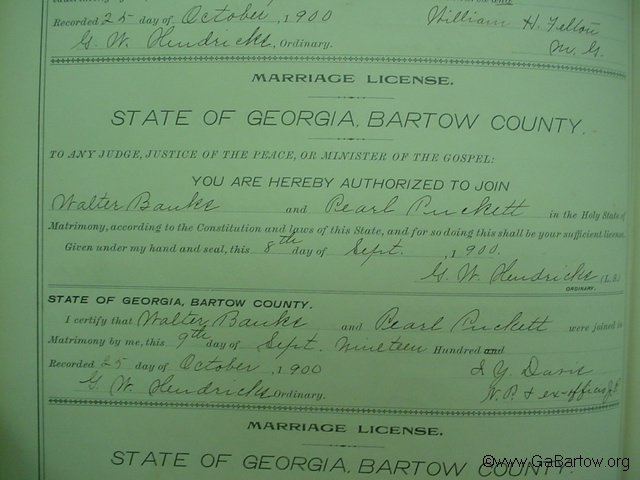 Recorded 25 day of October, 1900 William H. Felton
G. W. Hendricks, Ordinary. M. G.
MARRIAGE LICENSE.
STATE OF GEORGIA, BARTOW COUNTY.
TO ANY JUDGE, JUSTICE OF THE PEACE, OR MINISTER OF THE GOSPEL:
YOU ARE HEREBY AUTHORIZED TO JOIN
Walter Banks and Pearl Puckett in the Holy State of
Matrimony, according to the Constitution and laws of this State, and for so doing this shall be your sufficient license.
Given under my hand and seal, this 8th day of Sept. , 1900.
G. W. Hendricks (L.S.)
ORDINARY.
STATE OF GEORGIA, BARTOW COUNTY.
I certify that Walter Banks and Pearl Puckett were joined in
Matrimony by me, this 9th day of Sept. Nineteen Hundred and
Recorded 25 day of October, 1900 Y. Davis
G. W. Hendricks Ordinary. N. P. & ex-officio
MARRIAGE LICENSE.
STATE OF GEORGIA, BARTOW COUNTY.
©www.GaBartow.org